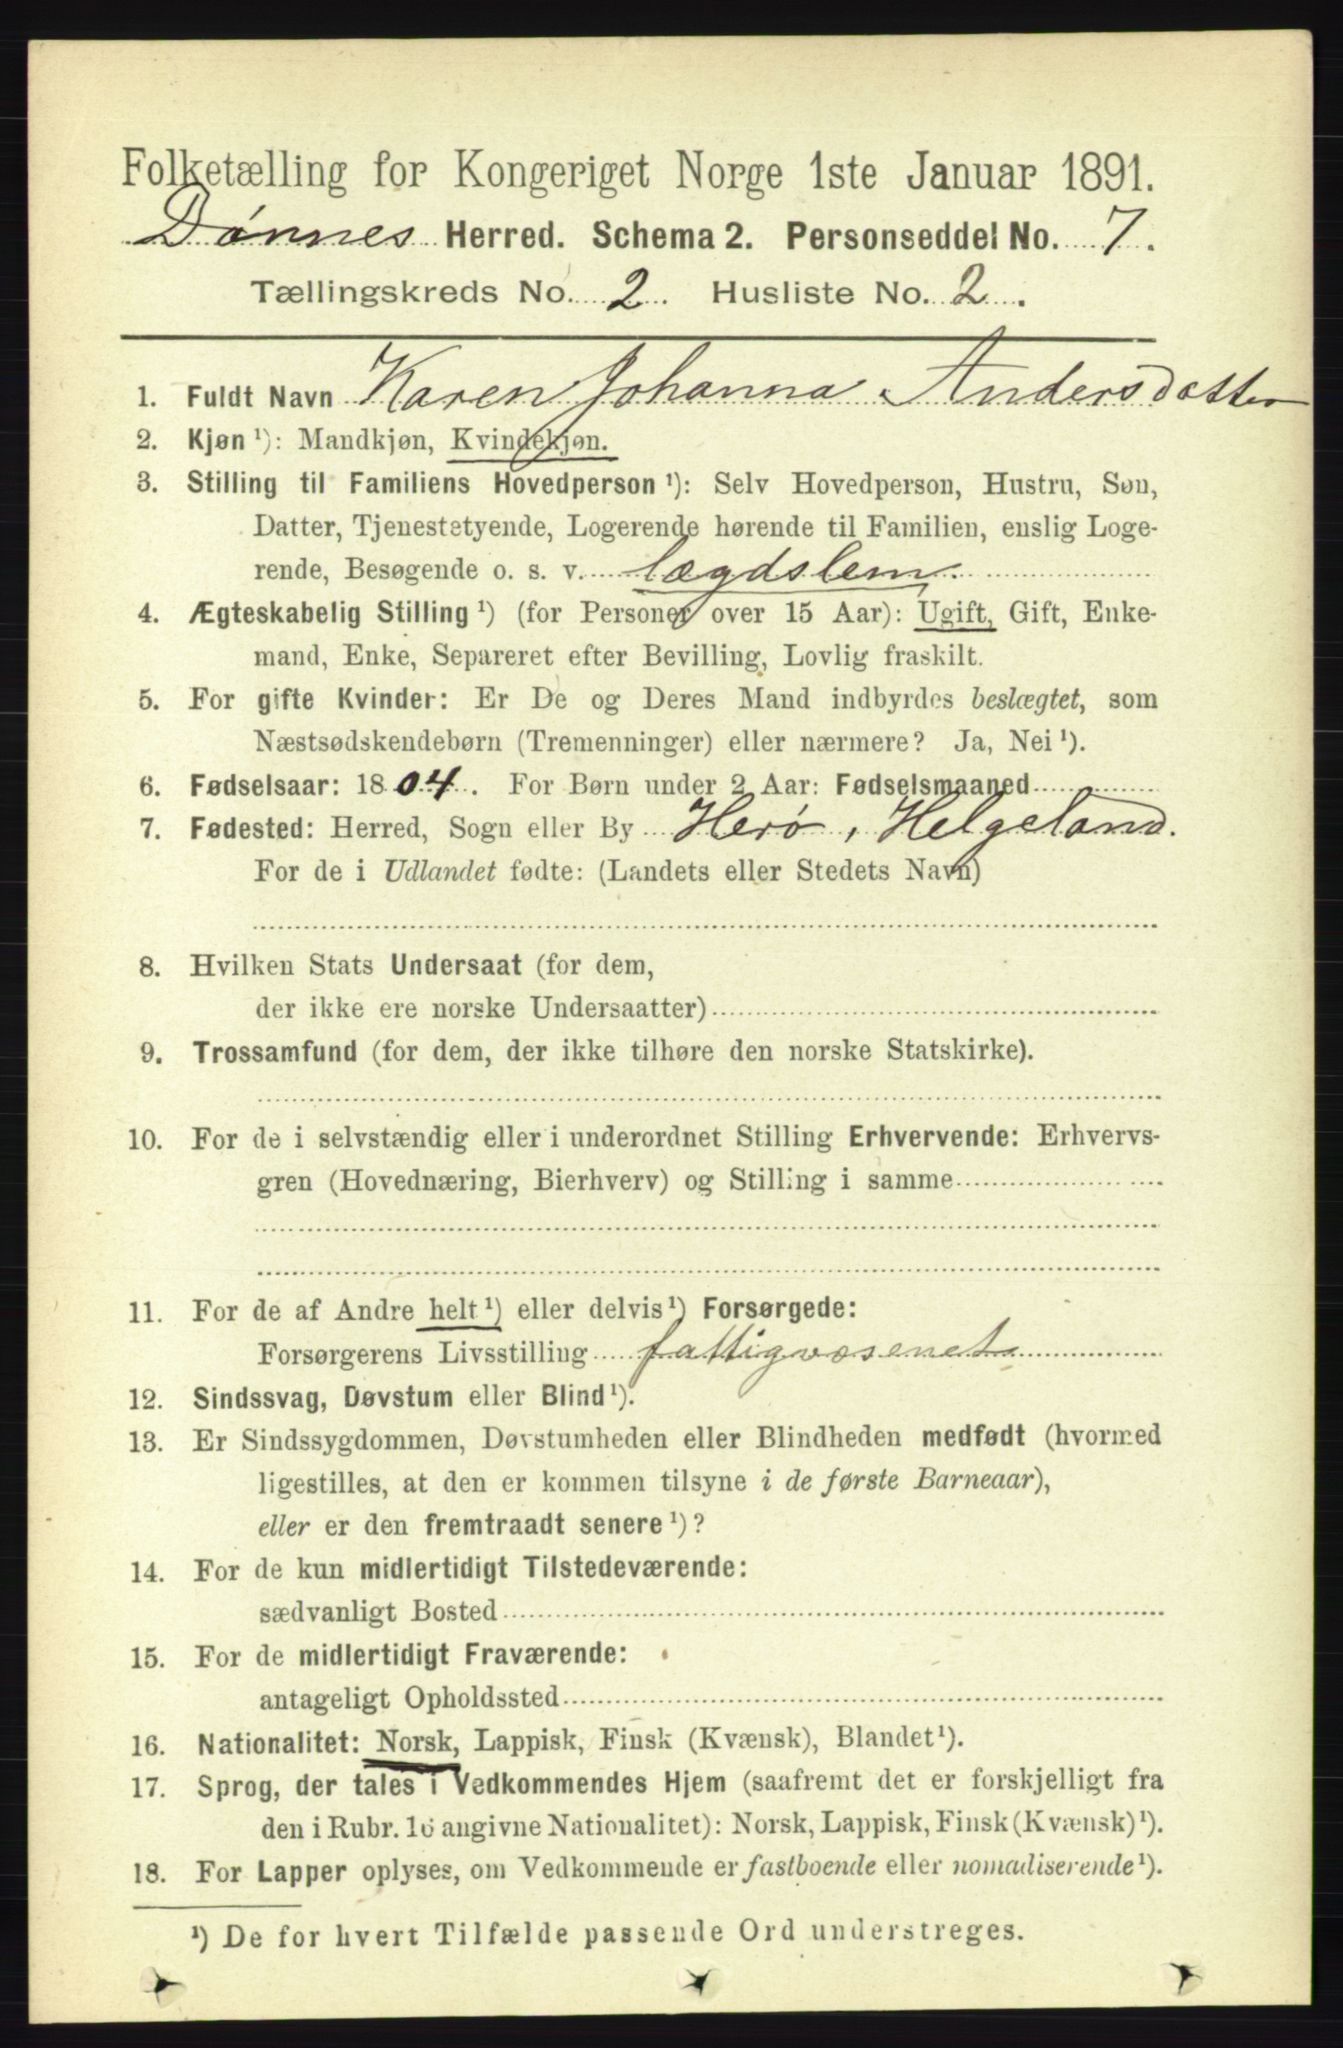 Folketælling for Kongeriget Norge 1ste Januar 1891.
Dønnes Herred. Schema 2. Personseddel No. 7.
Tællingskreds No. 2. Husliste No. 2.
1. Fuldt Navn Karen Johanna Andersdatter
2. Kjøn ¹): Mandkjøn, Kvindekjøn.
3. Stilling til Familiens Hovedperson ¹): Selv Hovedperson, Hustru, Søn,
Datter, Tjenestetyende, Logerende hørende til Familien, enslig Loge-
rende, Besøgende o. s. v. lægdslem.
4. Ægteskabelig Stilling ¹) (for Personer over 15 Aar): Ugift, Gift, Enke-
mand, Enke, Separeret efter Bevilling, Lovlig fraskilt.
5. For gifte Kvinder: Er De og Deres Mand indbyrdes beslægtet, som
Næstsødskendebørn (Tremenninger) eller nærmere? Ja, Nei ¹).
6. Fødselsaar: 1804. For Børn under 2 Aar: Fødselsmaaned
7. Fødested: Herred, Sogn eller By Herø, Helgeland.
For de i Udlandet fødte: (Landets eller Stedets Navn)
8. Hvilken Stats Undersaat (for dem,
der ikke ere norske Undersaatter)
9. Trossamfund (for dem, der ikke tilhøre den norske Statskirke).
10. For de i selvstændig eller i underordnet Stilling Erhvervende: Erhvervs-
gren (Hovednæring, Bierhverv) og Stilling i samme
11. For de af Andre helt ¹) eller delvis ¹) Forsørgede:
Forsørgerens Livsstilling fattigvæsenet
12. Sindssvag, Døvstum eller Blind ¹).
13. Er Sindssygdommen, Døvstumheden eller Blindheden medfødt (hvormed
ligestilles, at den er kommen tilsyne i de første Barneaar),
eller er den fremtraadt senere ¹)?
14. For de kun midlertidigt Tilstedeværende:
sædvanligt Bosted
15. For de midlertidigt Fraværende:
antageligt Opholdssted
16. Nationalitet: Norsk, Lappisk, Finsk (Kvænsk), Blandet ¹).
17. Sprog, der tales i Vedkommendes Hjem (saafremt det er forskjelligt fra
den i Rubr. 16 angivne Nationalitet): Norsk, Lappisk, Finsk (Kvænsk) ¹).
18. For Lapper oplyses, om Vedkommende er fastboende eller nomadiserende ¹).
¹) De for hvert Tilfælde passende Ord understreges.